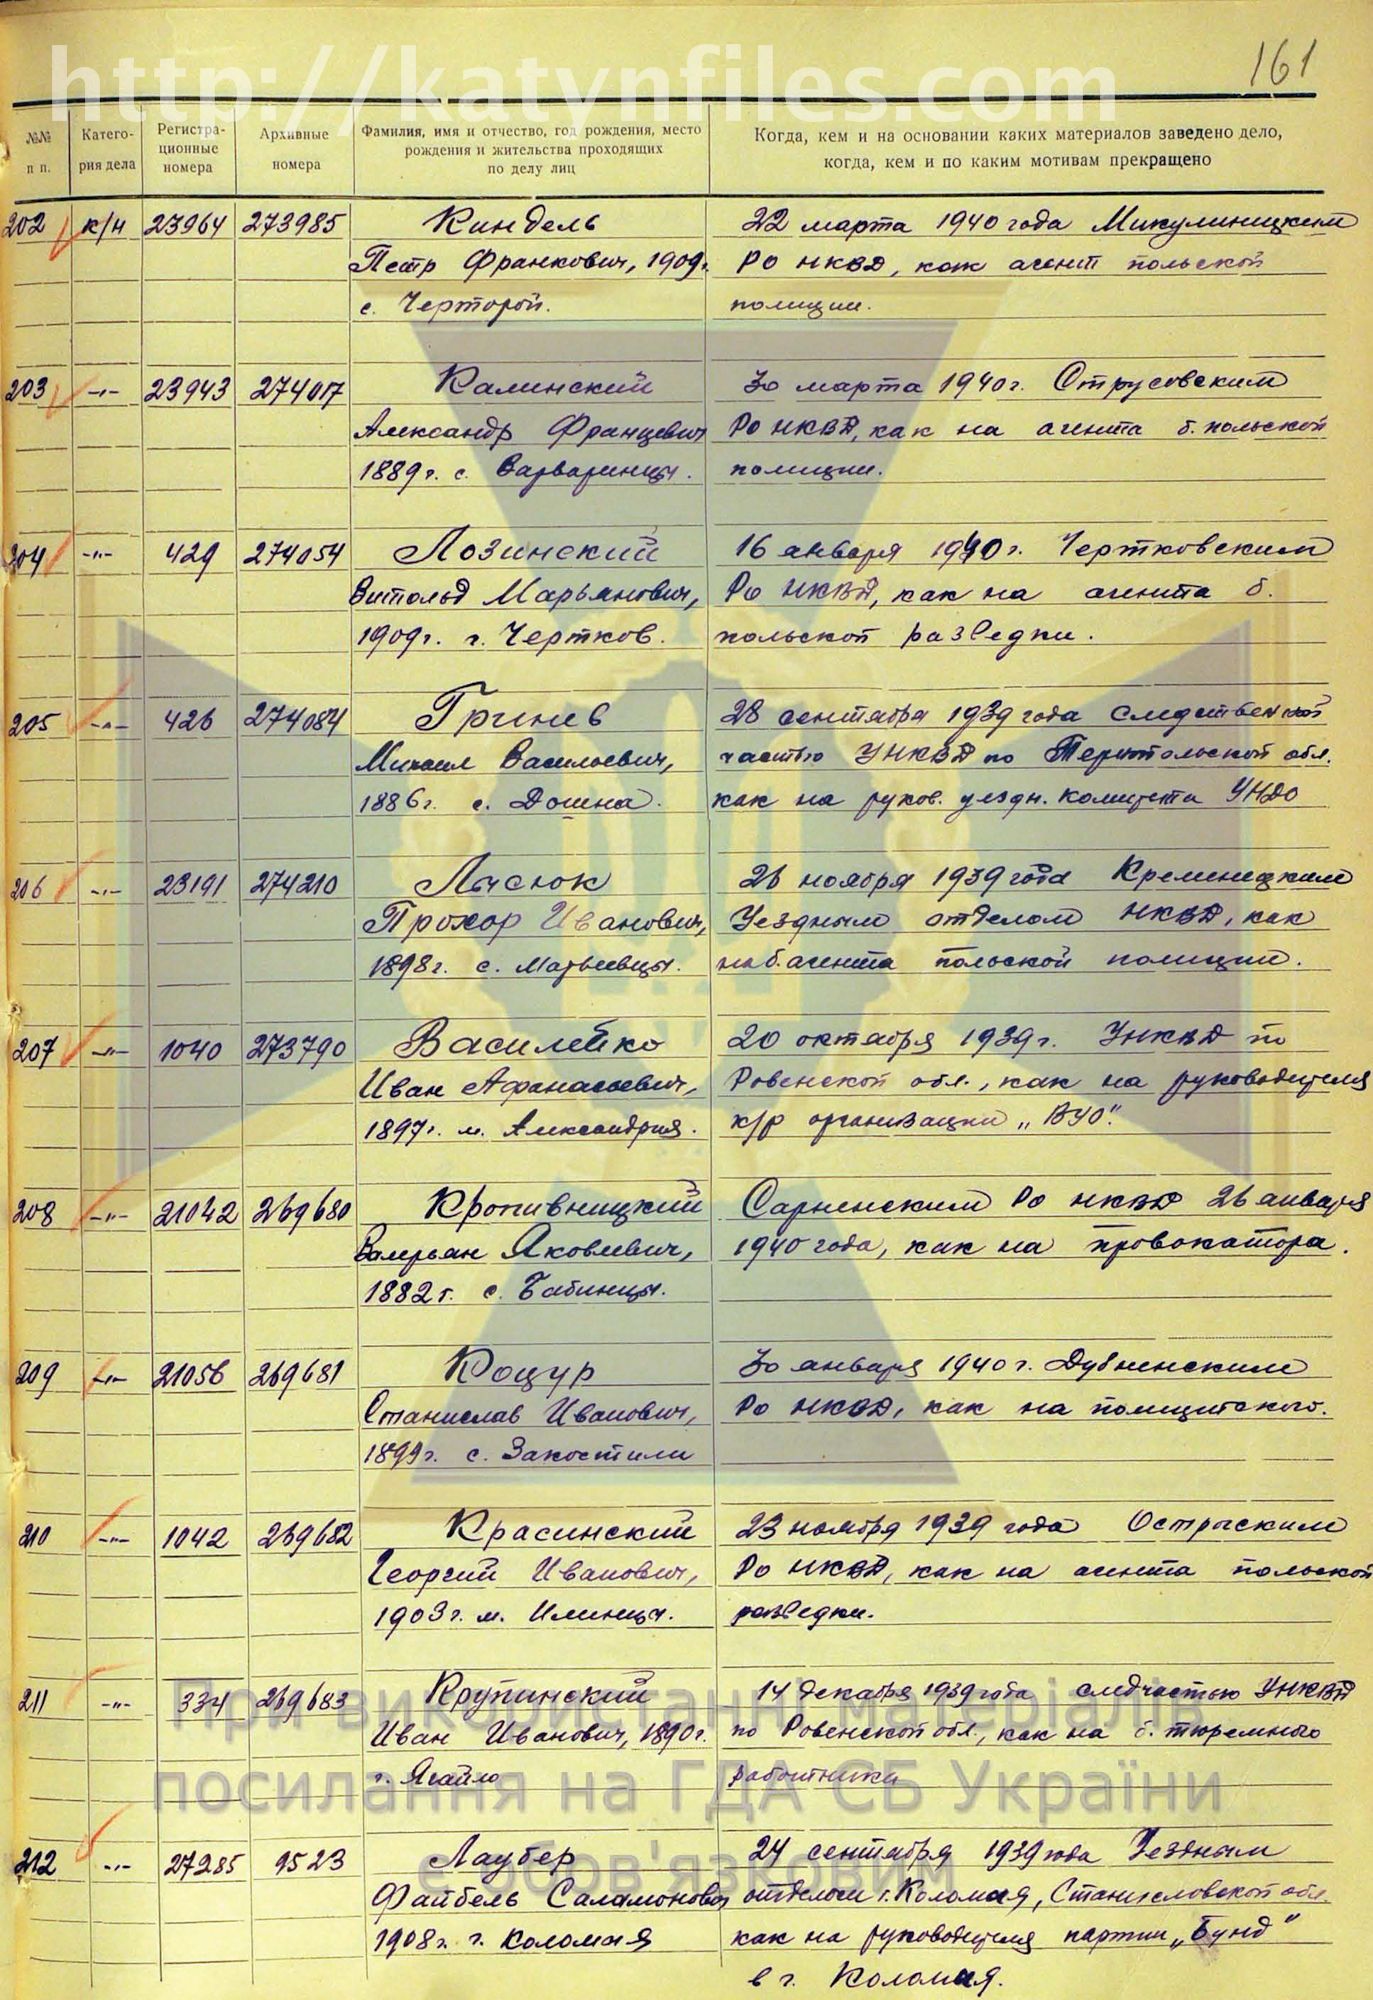 http://katynfiles.com
161
№№ п п.
Катего- рия дела
Регистра- ционные номера
Архивные номера
Фамилия, имя и отчество, год рождения, место рождения и жительства проходящих по делу лиц
Когда, кем и на основании каких материалов заведено дело, когда, кем и по каким мотивам прекращено
202 к/и 23964 273985 Киндель 22 марта 1940 года Микулинецким
Петр Франкович, 1909г. РО НКВД, как агент польской
с. Черторой. полиции.
203 -"- 23943 274017 Калинский 30 марта 1940г. Струсовским
Александр Францевич РО НКВД, как на агента б. польской
1889г. с. Варваринцы. полиции.
204 -"- 429 274054 Лозинский 16 января 1940г. Чертковским
Витольд Марьянович, РО НКВД, как на агента б.
1909г. г. Чертков. польской разведки.
205 -"- 426 274084 Гринев 28 сентября 1939 года Следственной
Михаил Васильевич, частью УНКВД по Тернопольской обл.
1886г. с. Дошна. как на руков. уездн. комитета УНДО
206 -"- 23191 274210 Лысюк 26 ноября 1939 года Кременецким
Прохор Иванович, Уездным отделом НКВД, как
1898г. с. Матвеевцы. на б. агента польской полиции.
207 -"- 1040 273790 Василейко 20 октября 1939г. УНКВД по
Иван Афанасьевич, Ровенской обл., как на руководителя
1897г. м. Александрия. к/р организации „ВУО".
208 -"- 21042 269680 Кропивницкий Сарненским РО НКВД 26 января
Валерьян Яковлевич, 1940 года, как на провокатора.
1882г. с. Бабинцы.
209 -"- 21056 269681 Коцур 30 января 1940г. Дубненским
Станислав Иванович, РО НКВД, как на полицитского.
1899г. с. Закостили
210 -"- 1042 269682 Красинский 23 ноября 1939 года Острыским
Георгий Иванович, РО НКВД, как на агента польской
1903г. м. Илинцы. разведки.
211 -"- 334 269683 Крупинский 14 декабря 1939 года следчастью УНКВД
Иван Иванович, 1890г. по Ровенской обл., как на б. тюремного
г. Ягайло работника
212 -"- 27285 9523 Лаубер 24 сентября 1939 года Уездным
Файбель Саламонович отделом г. Коломыя, Станиславской обл.
1908г. г. Коломыя как на руководителя партии „Бунд"
в г. Коломыя.
При використанні матеріалів
посилання на ГДА СБ України
є обов'язковим